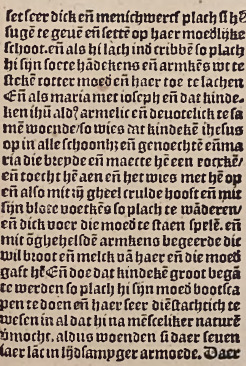 seer seer dick eñ menschwerf plach si hē
sugē te geuē eñ settē op haer moedlijke
schoot. eñ als hi lach ind cribbē so plach
hi sijn soete hādekens eñ armkēs wt te
stekē totter moed eñ haer toe te lachen
Eñ als maria met ioseph eñ dat kinde-
ken ihū ald? armelic eñ deuotelick te sa
mē woende/ so wies dat kindekē ihesus
op in alle schoonhz eñ genoechtē eñ ma
ria die breyde eñ maecte hē een rocxkē/
eñ toecht hē aen eñ het wies met hē op
eñ also mit ij gheel crulde hooft eñ mit
sijn bloee voetkēs so plach te wāderen/
eñ dick voer die moed te staen spelē. eñ
mit ōghehelsdē armkens begeerde die
wil broot eñ melck vā haer eñ die moed
gaft hē Eñ doe dat kindekē groot begā
te werden so plach hi sijn moed bootsca
pen te doen eñ haer seer diēstachtich te
wesen in al dat hi na mēscelliker naturē
v̄mocht. aldus woenden si daer seuen
iaer lāt in lijdsamyger armoede. Daer